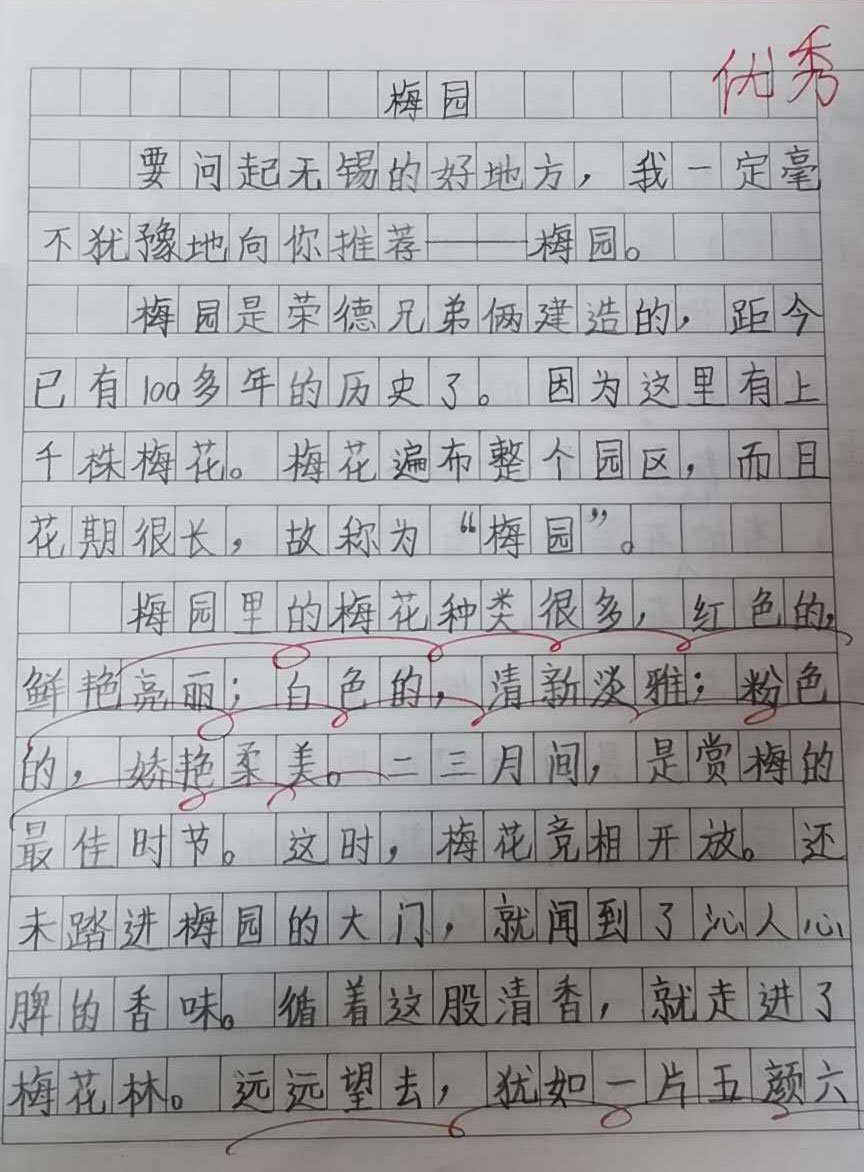 优秀
梅园
要问起无锡的好地方，我一定毫
不犹豫地向你推荐——梅园。
梅园是荣德兄弟俩建造的，距今
已有100多年的历史了。因为这里有上
千株梅花。梅花遍布整个园区，而且
花期很长，故称为“梅园”。
梅园里的梅花种类很多，红色的，
鲜艳亮丽；白色的，清新淡雅；粉色
的，娇艳柔美。二三月间，是赏梅的
最佳时节。这时，梅花竞相开放。还
未踏进梅园的大门，就闻到了沁人心
脾的香味。循着这股清香，就走进了
梅花林。远远望去，犹如一片五颜六